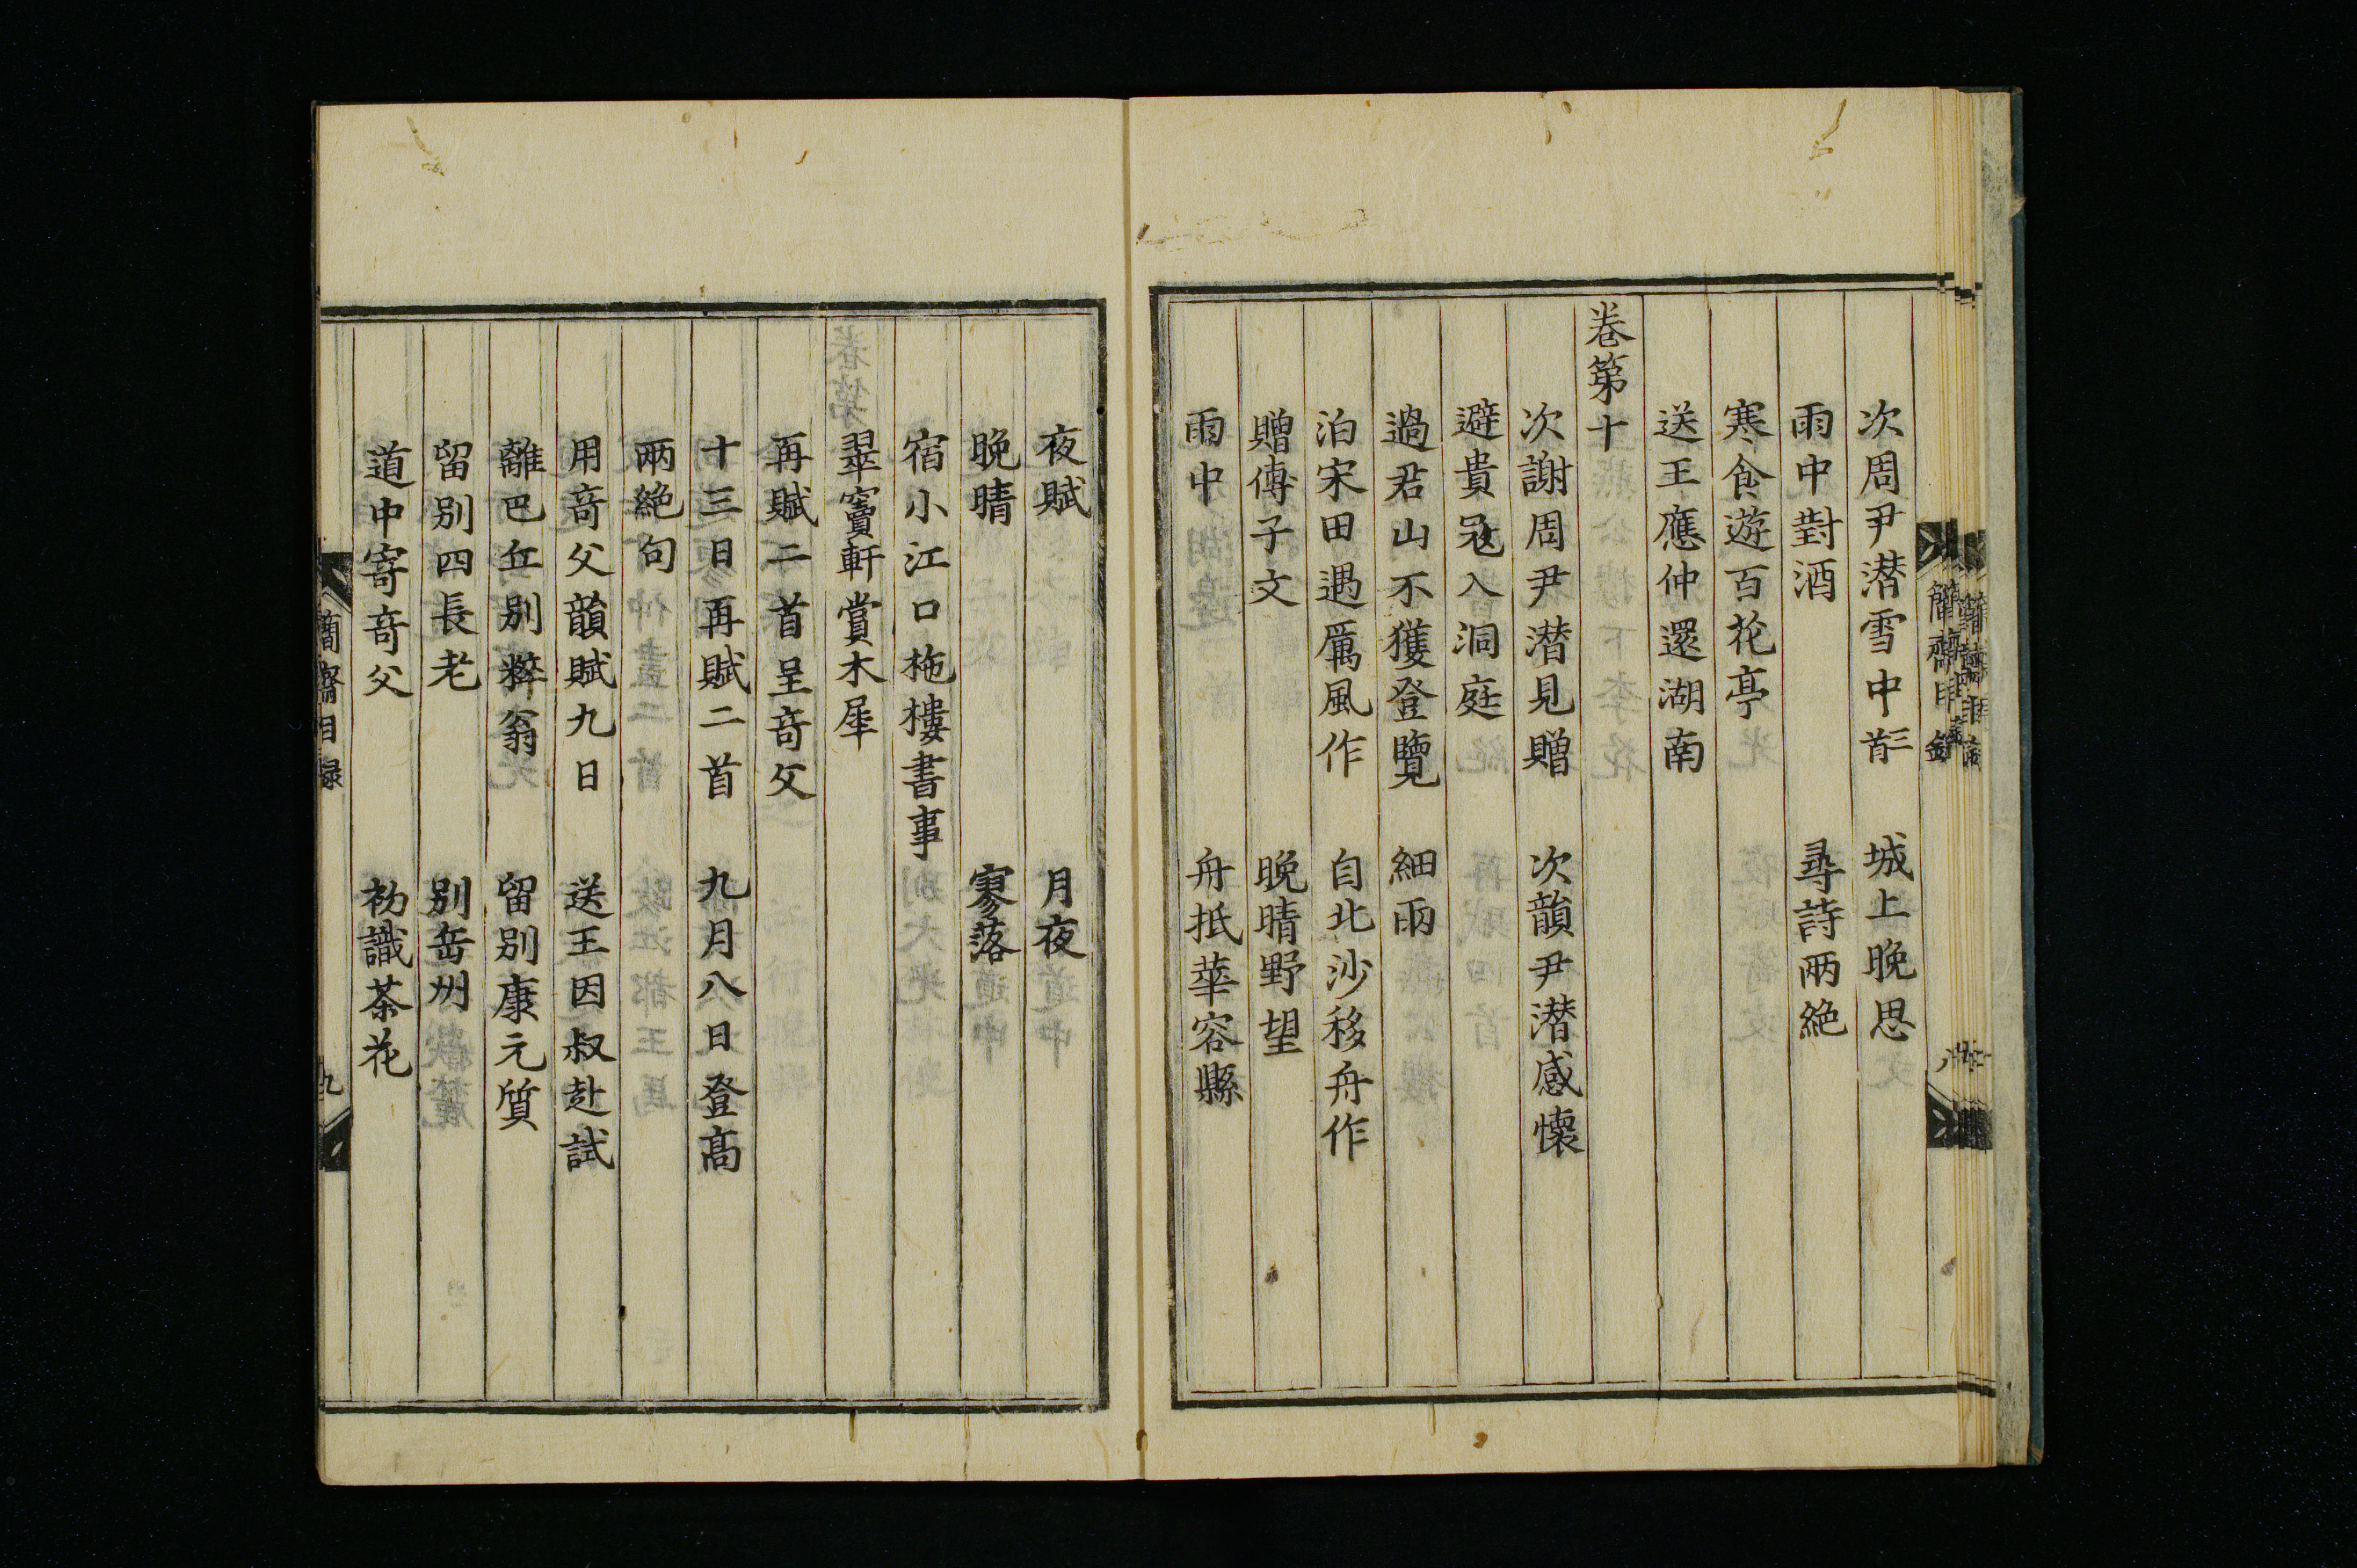 次周尹潜雪中三首 城上晚思
雨中對酒 尋詩兩絶
寒食遊百花亭
送王應仲還湖南
卷第十
次謝周尹潜見贈 次韻尹潜感懷
避貴冦入洞庭
過君山不獲登覽 細雨
泊宋田遇厲風作 自北沙移舟作
贈傅子文 晚晴野望
雨中 舟抵華容縣
夜賦 月夜
晚晴 寥落
宿小江口拖樓書事
翠竇軒賞木犀
再賦二首呈奇父
十三日再賦二首 九月八日登髙
兩絶句
用奇父韻賦九日 送王因叔赴試
離巴丘别粹翁 留别康元質
留别四長老 别岳州
道中寄奇父 初識茶花
簡齋目録
九